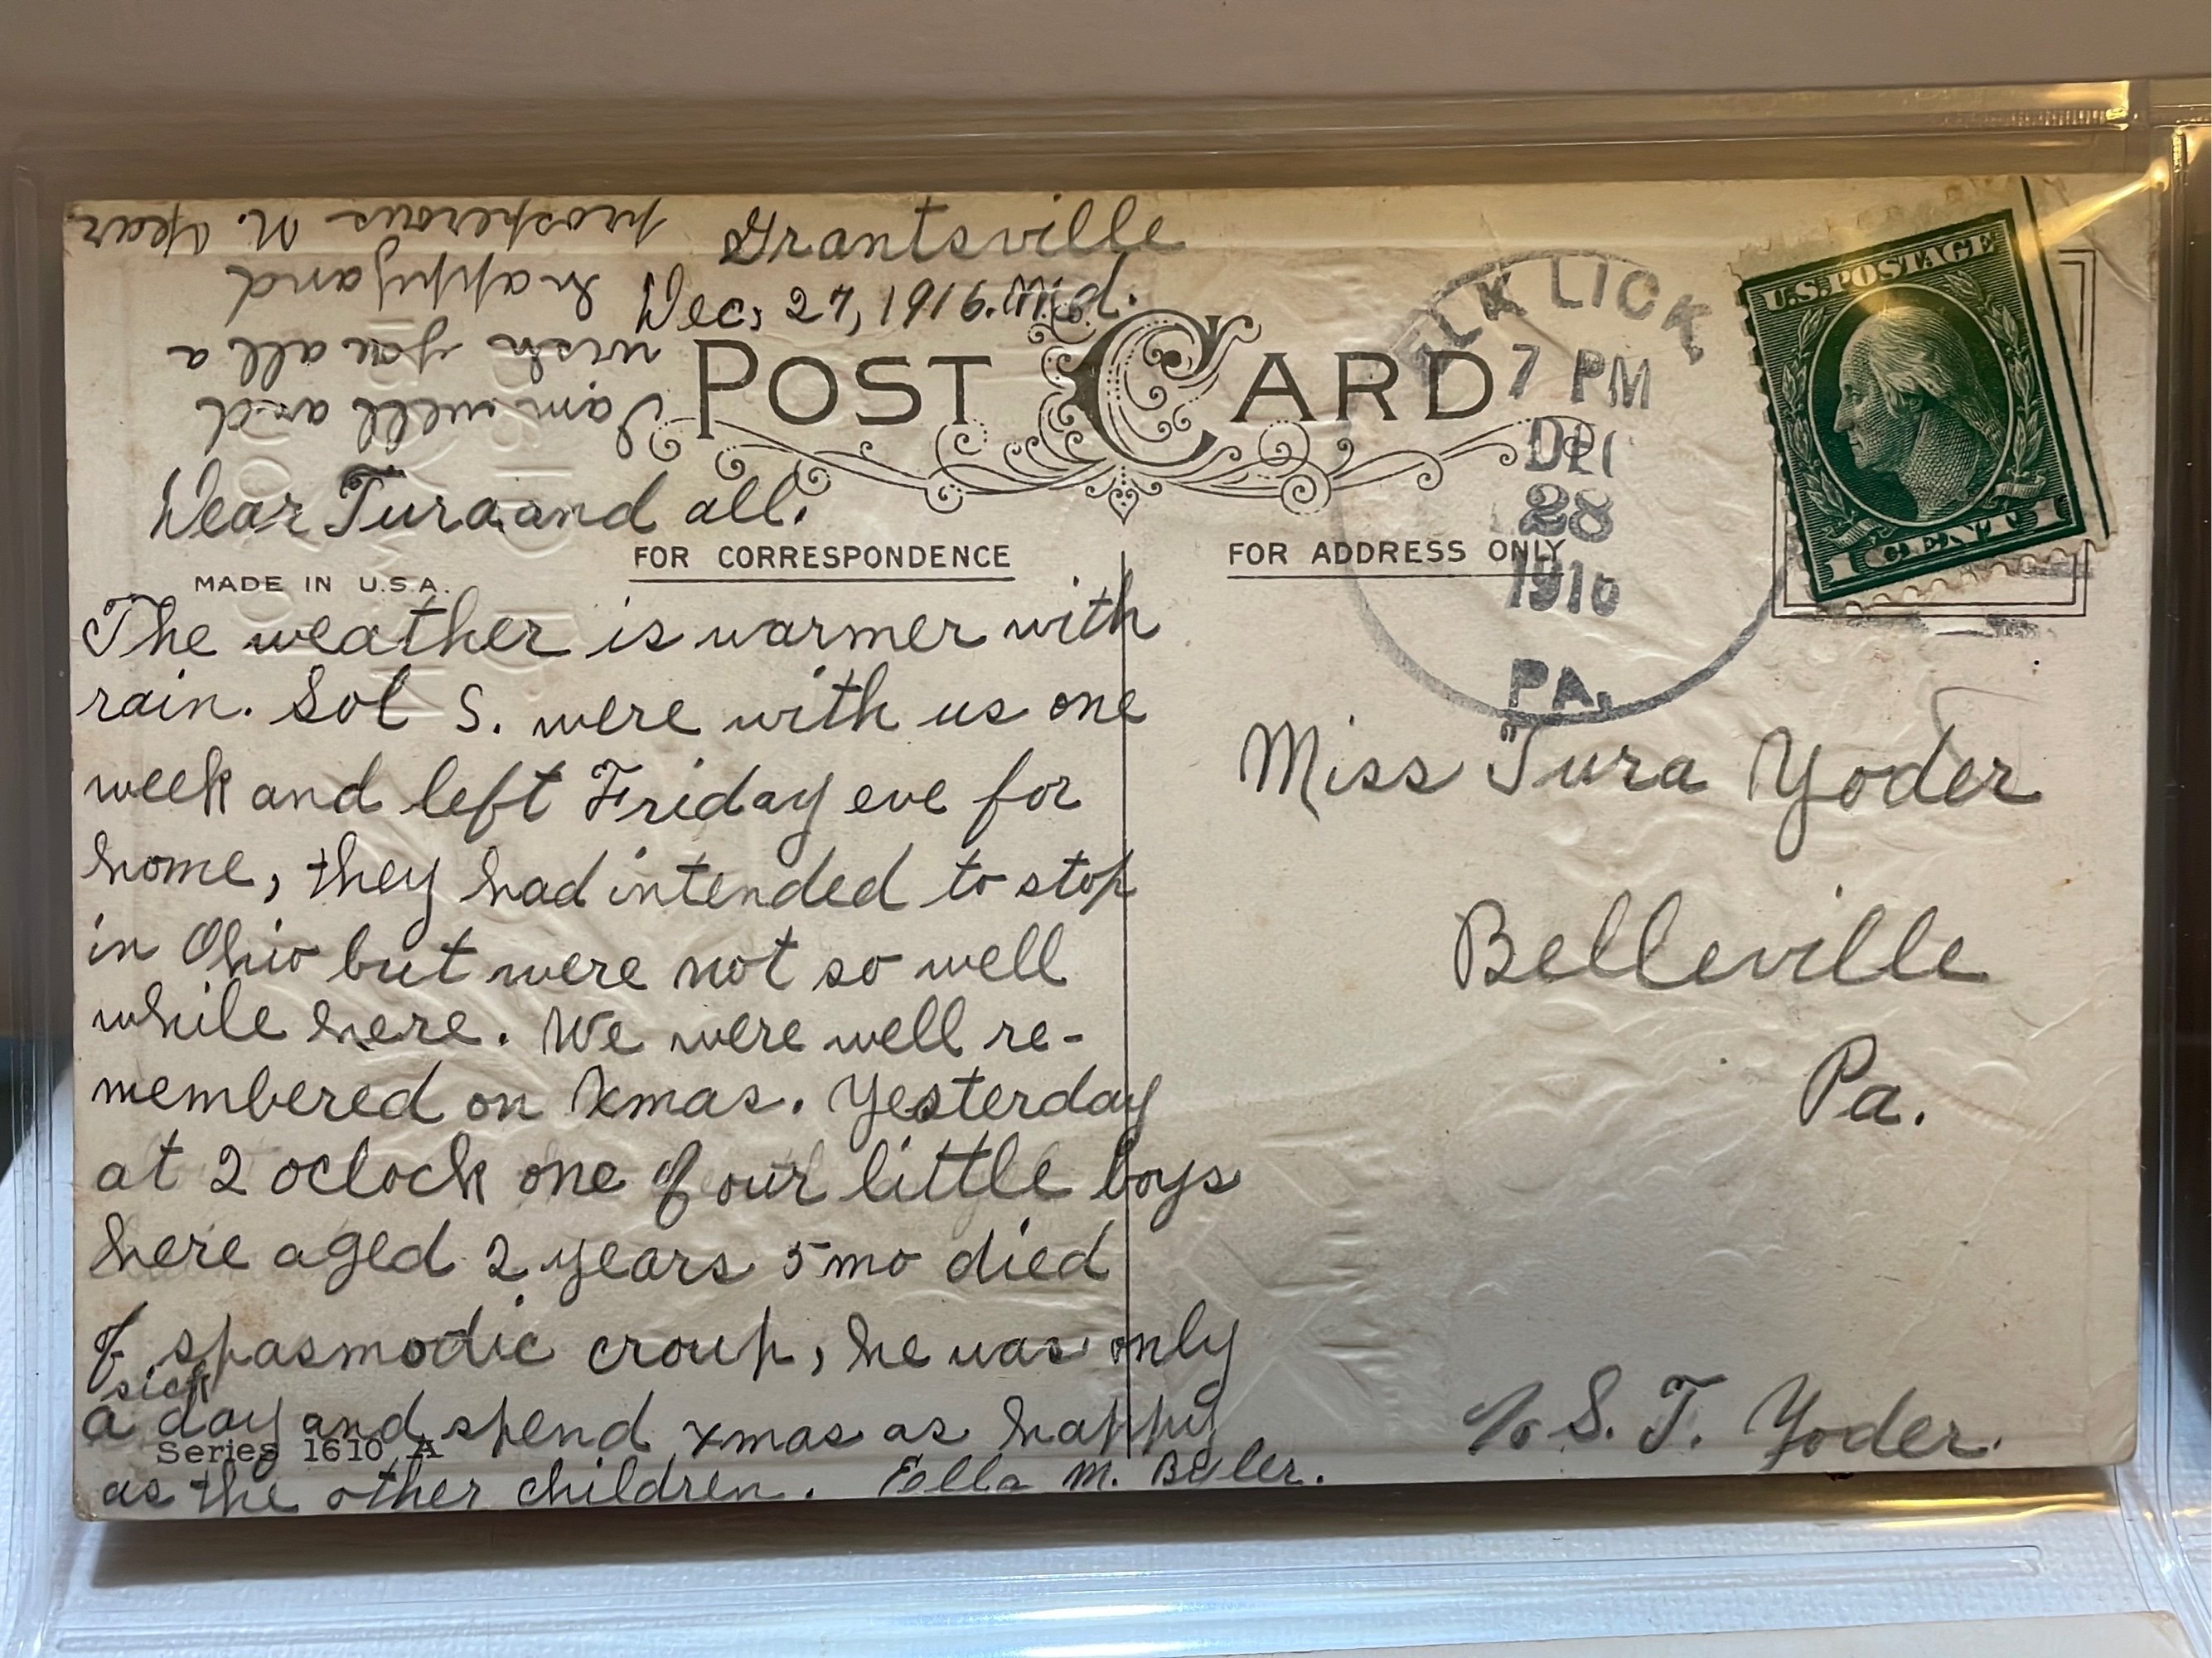 Grantsville
Dec, 27, 1916. Md.
POST CARD
Dear Tura and all.
FOR CORRESPONDENCE
MADE IN U.S.A.
The weather is warmer with
rain. Sol S. were with us one
week and left Friday eve for
home, they had intended to stop
in Ohio but were not so well
while here. We were well re-
membered on Xmas. Yesterday
at 2 oclock one of our little boys
here aged 2 years 5 mo died
of spasmodic croup, he was only
sick
a day and spend xmas as happy
Series 1610 A
as the other children. Ella M. Beiler.
I am well and
wish you all a
happy and
prosperous N. Year
FOR ADDRESS ONLY
ELK LICK
7 PM
DEC
28
1916
PA.
U.S. POSTAGE
1 CENT 1
Miss Tura Yoder
Belleville
Pa.
c/o S. T. Yoder.